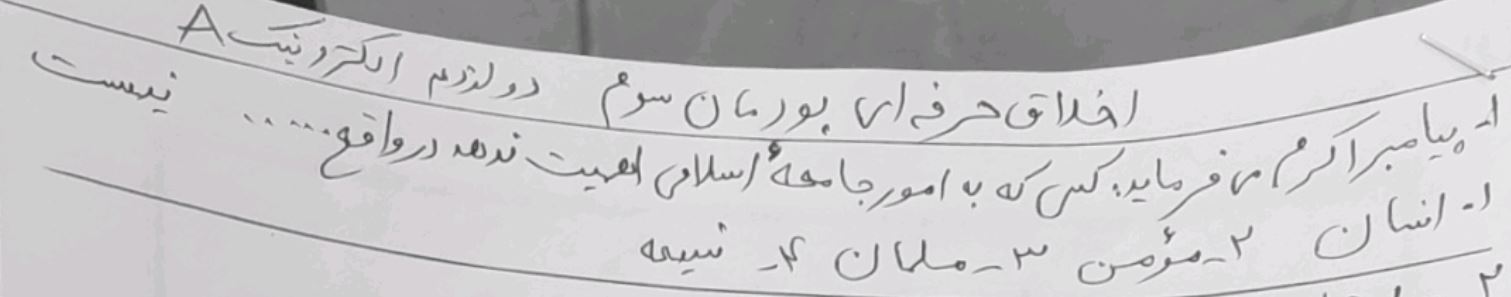 اخلاق حرفه ای پودمان سوم دوازدهم الکترونیک A
۱- پیامبر اکرم می فرماید: کسی که به امور جامعهٔ اسلامی اهمیت ندهد در واقع ...... نیست
۱- انسان ۲- مؤمن ۳- مسلمان ۴- شیعه
۲